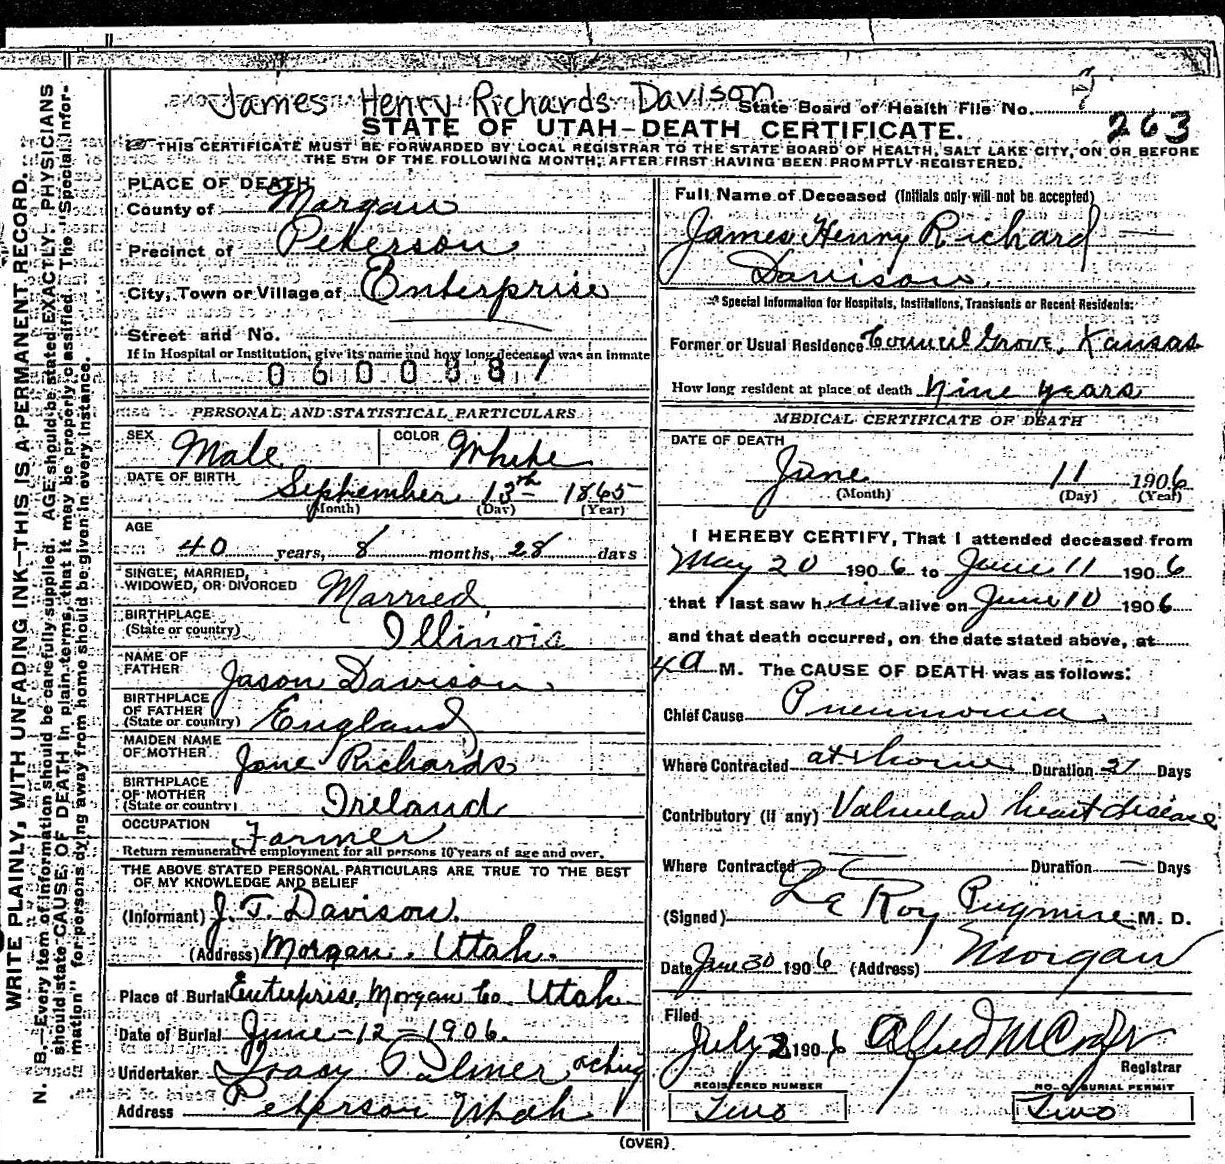 James Henry Richards Davison
State Board of Health File No. 7
263
STATE OF UTAH—DEATH CERTIFICATE.
THIS CERTIFICATE MUST BE FORWARDED BY LOCAL REGISTRAR TO THE STATE BOARD OF HEALTH, SALT LAKE CITY, ON OR BEFORE
THE 5TH OF THE FOLLOWING MONTH, AFTER FIRST HAVING BEEN PROMPTLY REGISTERED.
WRITE PLAINLY, WITH UNFADING INK—THIS IS A PERMANENT RECORD.
N. B.—Every item of information should be carefully supplied. AGE should be stated EXACTLY. PHYSICIANS
should state CAUSE OF DEATH in plain terms, that it may be properly classified. The "Special Infor-
mation" for persons dying away from home should be given in every instance.
PLACE OF DEATH
County of Morgan
Precinct of Peterson
City, Town or Village of Enterprise
Street and No.
If in Hospital or Institution, give its name and how long deceased was an inmate
0600887
PERSONAL AND STATISTICAL PARTICULARS
SEX Male COLOR White
DATE OF BIRTH September 13th 1865
(Month) (Day) (Year)
AGE
40 years, 8 months, 28 days
SINGLE, MARRIED,
WIDOWED, OR DIVORCED Married
BIRTHPLACE
(State or country) Illinois
NAME OF
FATHER Jason Davison
BIRTHPLACE
OF FATHER
(State or country) England
MAIDEN NAME
OF MOTHER Jane Richards
BIRTHPLACE
OF MOTHER
(State or country) Ireland
OCCUPATION Farmer
Return remunerative employment for all persons 10 years of age and over.
THE ABOVE STATED PERSONAL PARTICULARS ARE TRUE TO THE BEST
OF MY KNOWLEDGE AND BELIEF
(Informant) J. T. Davison.
(Address) Morgan, Utah.
Place of Burial Enterprise, Morgan Co. Utah
Date of Burial June-12-1906.
Undertaker Palmer acting
Address Peterson Utah
Full Name of Deceased (Initials only will not be accepted)
James Henry Richard
Davison
Special Information for Hospitals, Institutions, Transients or Recent Residents:
Former or Usual Residence Council Grove, Kansas
How long resident at place of death Nine years
MEDICAL CERTIFICATE OF DEATH
DATE OF DEATH
June 11 1906
(Month) (Day) (Year)
I HEREBY CERTIFY, That I attended deceased from
May 20 1906 to June 11 1906
that I last saw him alive on June 10 1906
and that death occurred, on the date stated above, at
4 a M. The CAUSE OF DEATH was as follows:
Chief Cause Pneumonia
Where Contracted at home Duration 21 Days
Contributory (if any) Valvular heart disease
Where Contracted — Duration — Days
(Signed) Le Roy Pugmire M. D.
Date June 30 1906 (Address) Morgan
Filed
July 2 1906 Alfred
Registrar
REGISTERED NUMBER
Two
NO. OF BURIAL PERMIT
Two
(OVER)